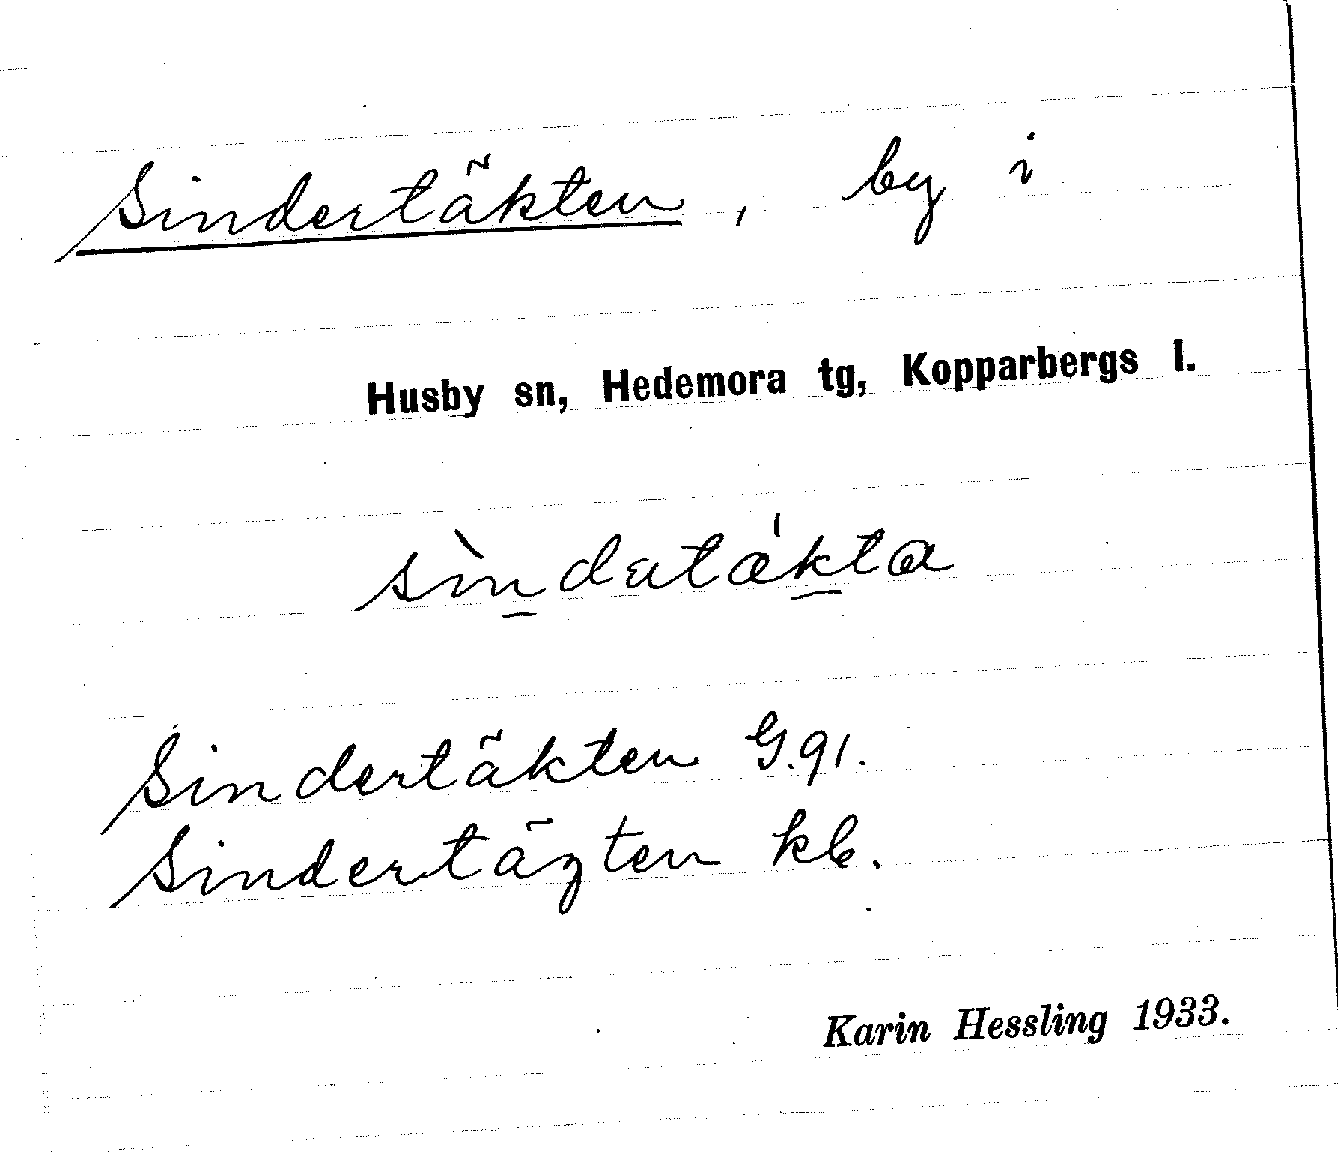 Sindertäkten, by i
Husby sn, Hedemora tg, Kopparbergs l.
sìndatákta
Sindertäkten G.91.
Sindertägten kb.
Karin Hessling 1933.